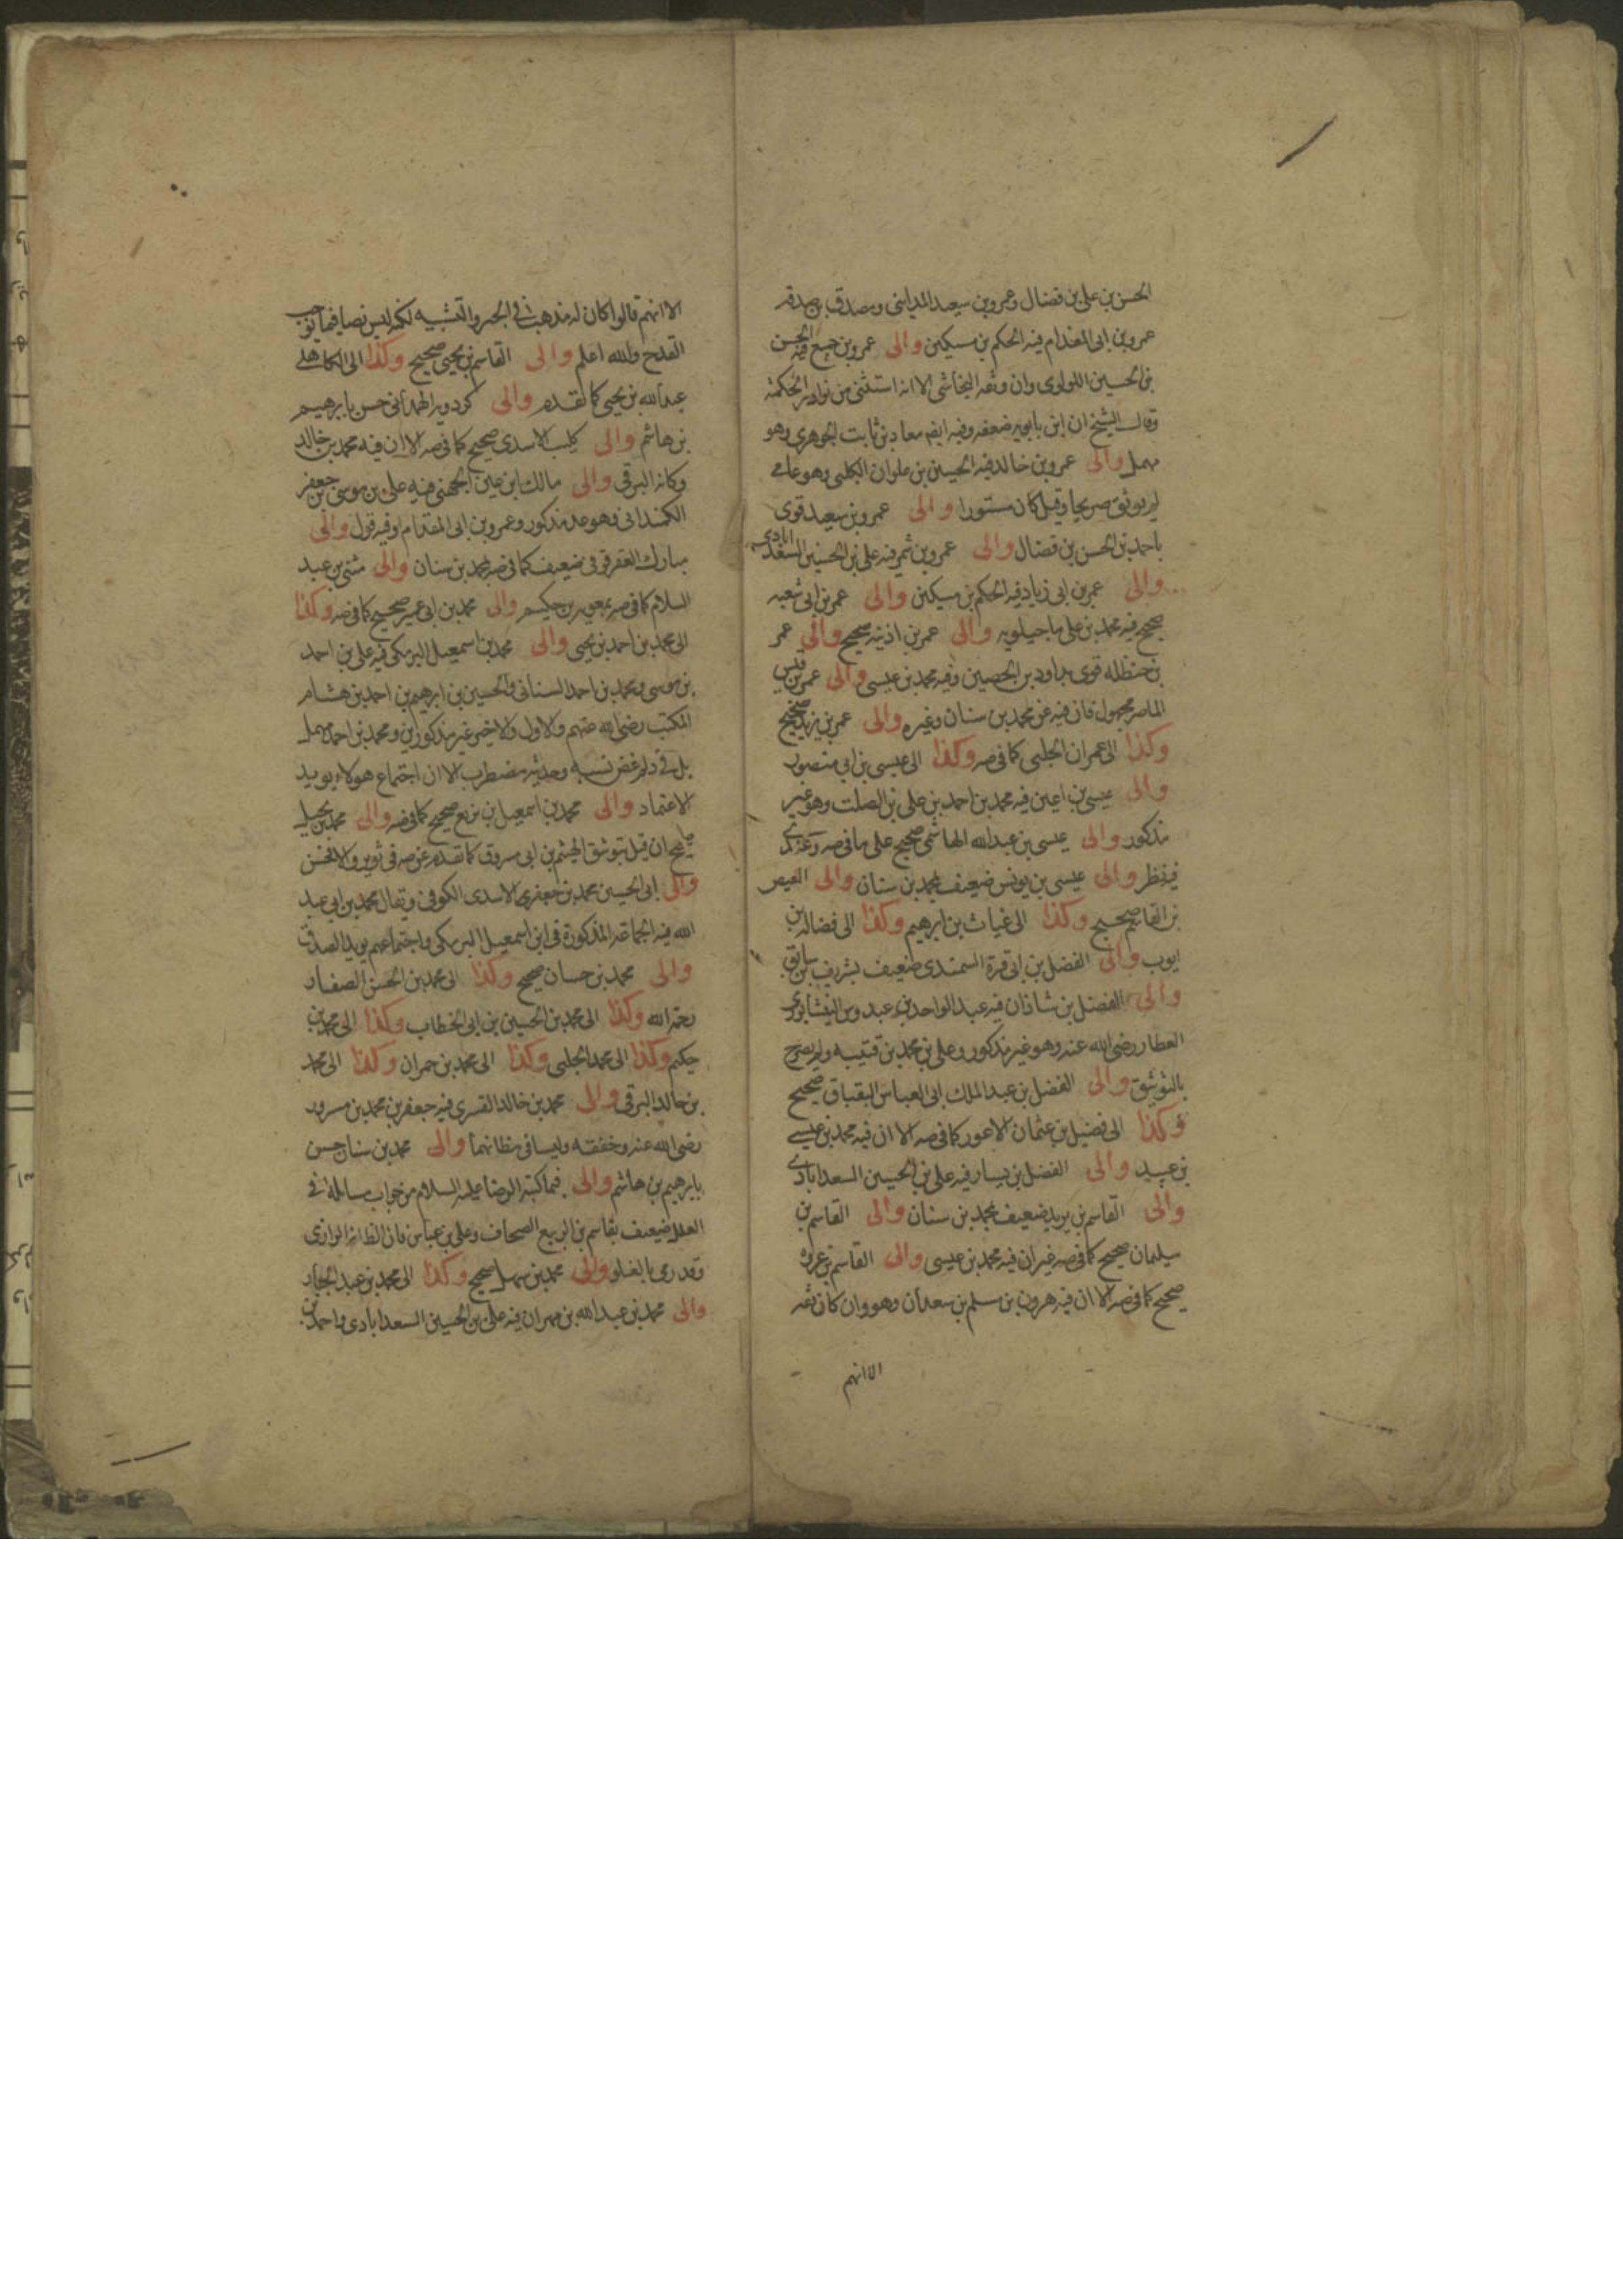 الحسن بن على بن فضال وعمرو بن سعيد المداينى ومصدق بن صدقه
عمرو بن ابى المقدام فيه الحكم بن مسكين والى عمرو بن جميع فيه الحسن
بن الحسين اللولوى وان وثقه النجاشى الا انه استثنى من نوادر الحكمة
وقال الشيخ ان ابن بابويه ضعفه وفيه ايضم معاذ بن ثابت الجوهرى وهو
مهمل والى عمرو بن خالد فيه الحسين بن علوان الكلبى وهو عامى
لم يوثق صريحا وقيل كان مستورا والى عمرو بن سعيد قوى
باحمد بن الحسن بن فضال والى عمرو بن شمر فيه على بن الحسين السعدابادى
والى عمر بن ابى زياد فيه الحكم بن مسكين والى عمر بن ابى شعبه
صحيح فيه محمد بن على ماجيلويه والى عمر بن اذينه صحيح والى عمر
بن حنظله قوى بداود بن الحصين وفيه محمد بن عيسى والى عمر بن قيس
الماصر مجهول فان فيه عن محمد بن سنان وغيره والى عمر بن يزيد صحيح
وكذا الى عمران الحلبى كما فى صه وكذا الى عيسى بن ابى منصور
والى عيسى بن اعين فيه محمد بن احمد بن على بن الصلت وهو غير
مذكور والى عيسى بن عبد الله الهاشمى صحيح على ما فى صه وعندى
فيه نظر والى عيسى بن يونس ضعيف بمحمد بن سنان والى العيص
بن القاسم صحيح وكذا الى غياث بن ابرهيم وكذا الى فضالة بن
ايوب والى الفضل بن ابى قرة السمندى ضعيف بشريف بن سابق
والى الفضل بن شاذان فيه عبد الواحد بن عبدوس النيشابورى
العطار رضى الله عنه وهو غير مذكور وعلى بن محمد بن قتيبه ولم يصرح
بالتوثيق والى الفضل بن عبد الملك ابى العباس البقباق صحيح
وكذا الى فضيل بن عثمان الاعور كما فى صه الا ان فيه محمد بن عيسى
بن عبيد والى الفضل بن يسار فيه على بن الحسين السعدابادى
والى القاسم بن بريد ضعيف بمحمد بن سنان والى القاسم بن
سليمان صحيح كما فى صه غير ان فيه محمد بن عيسى والى القاسم بن عروه
صحيح كما فى صه الا ان فيه هرون بن مسلم بن سعدان وهو وان كان ثقه
الا انهم
الا انهم قالوا كان له مذهب فى الجبر والتشبيه لكنه ليس نصا فيما يوجب
القدح والله اعلم والى القاسم بن يحيى صحيح وكذا الى الكاهلى
عبد الله بن يحيى كما تقدم والى كردويه الهمدانى حسن بابرهيم
بن هاشم والى كليب الاسدى صحيح كما فى صه الا ان فيه محمد بن خالد
وكانه البرقى والى مالك ابن اعين الجهنى فيه على بن موسى بن جعفر
الكمندانى وهو عد مذكور وعمرو بن ابى المقدام وفيه قول والى
مبارك العقرقوفى ضعيف كما فى صه بمحمد بن سنان والى مثنى بن عبد
السلام كما فى صه بمعويه بن حكيم والى محمد بن ابى عمير صحيح كما فى صه وكذا
الى محمد بن احمد بن يحيى والى محمد بن اسمعيل البرمكى فيه على بن احمد
بن موسى ومحمد بن احمد السنانى والحسين بن ابرهيم بن احمد بن هشام
المكتب رضى الله عنهم والاول والاخير غير مذكورين ومحمد بن احمد مهمل
بل فى د لم غض نسبه وحديثه مضطرب الا ان اجتماع هولاء يويد
الاعتماد والى محمد بن اسمعيل بن بزيع صحيح كما فى صه والى محمد بن بجيل
صحيح ان قيل بتوثيق الهيثم بن ابى مسروق كما تقدم عن صه فى ثوير والا فحسن
والى ابى الحسين محمد بن جعفر الاسدى الكوفى ويقال محمد بن ابى عبد
الله فيه الجماعة المذكورة فى ابن اسمعيل البرمكى واجتماعهم يويد الصدق
والى محمد بن حسان صحيح وكذا الى محمد بن الحسن الصفار
رحمه الله وكذا الى محمد بن الحسين بن ابى الخطاب وكذا الى محمد بن
حكيم وكذا الى محمد الحلبى وكذا الى محمد بن حمران وكذا الى محمد
بن خالد البرقى والى محمد بن خالد القسرى فيه جعفر بن محمد بن مسرور
رضى الله عنه وخفقه وليسا فى مظانهما والى محمد بن سنان حسن
بابرهيم بن هاشم والى فيما كتبه الرضا عليه السلام من جواب مسائله فى
العلل ضعيف بقاسم بن الربيع الصحاف وعلى بن عباس فان الظ انه الرازى
وقد رمى بالغلو والى محمد بن سهل صحيح وكذا الى محمد بن عبد الجبار
والى محمد بن عبد الله بن مهران فيه على بن الحسين السعدابادى واحمد بن